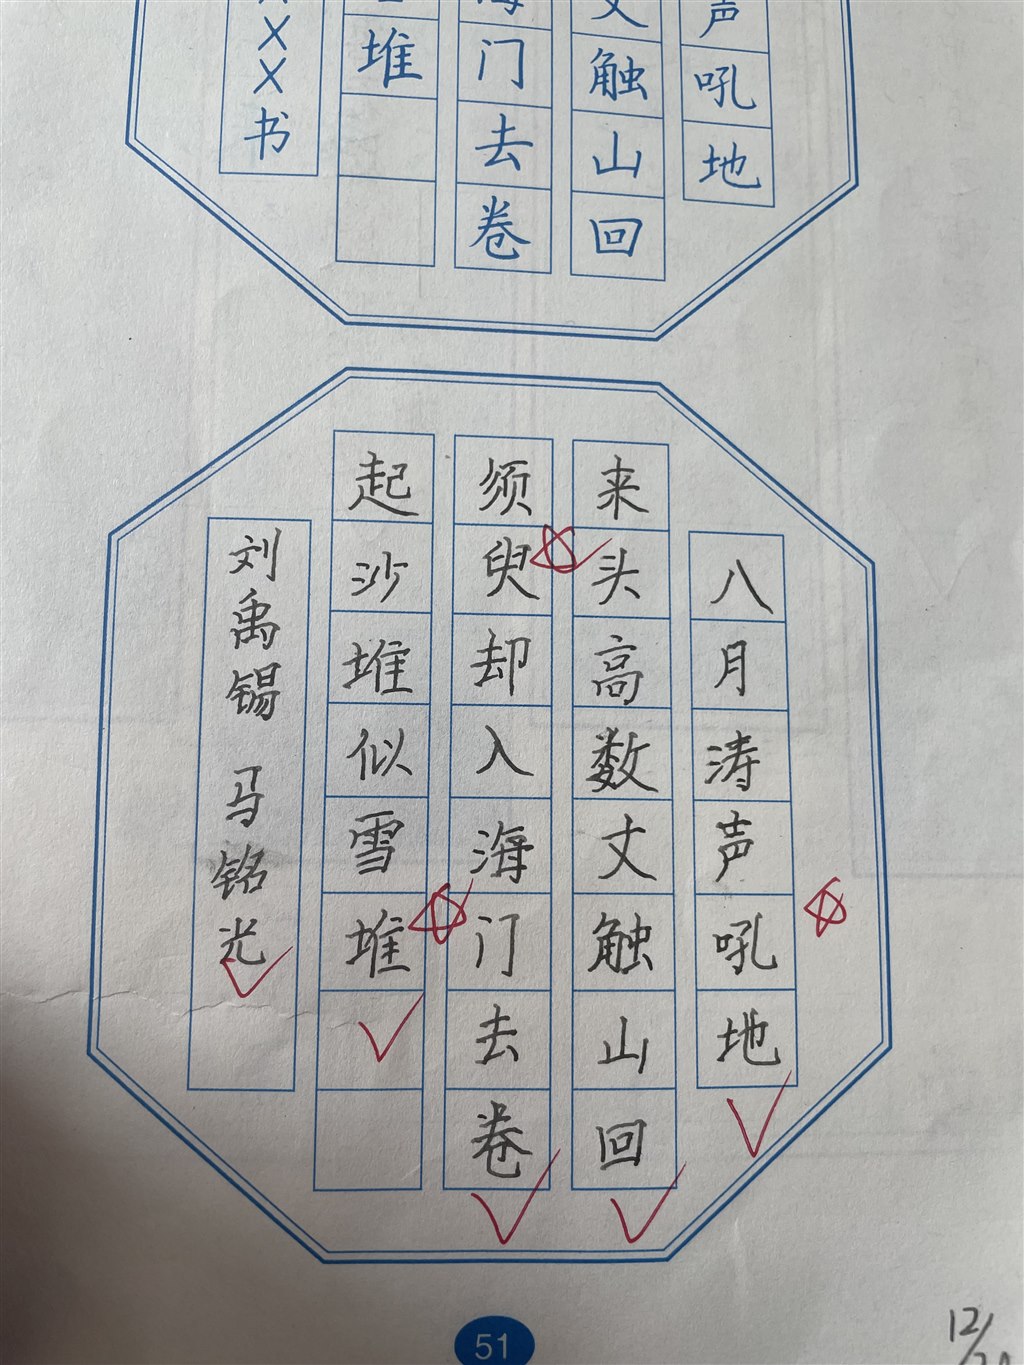 声吼地
丈触山回
海门去卷
堆
XX书
八月涛声吼地
来头高数丈触山回
须臾却入海门去卷
起沙堆似雪堆
刘禹锡 马铭光
51
12/20